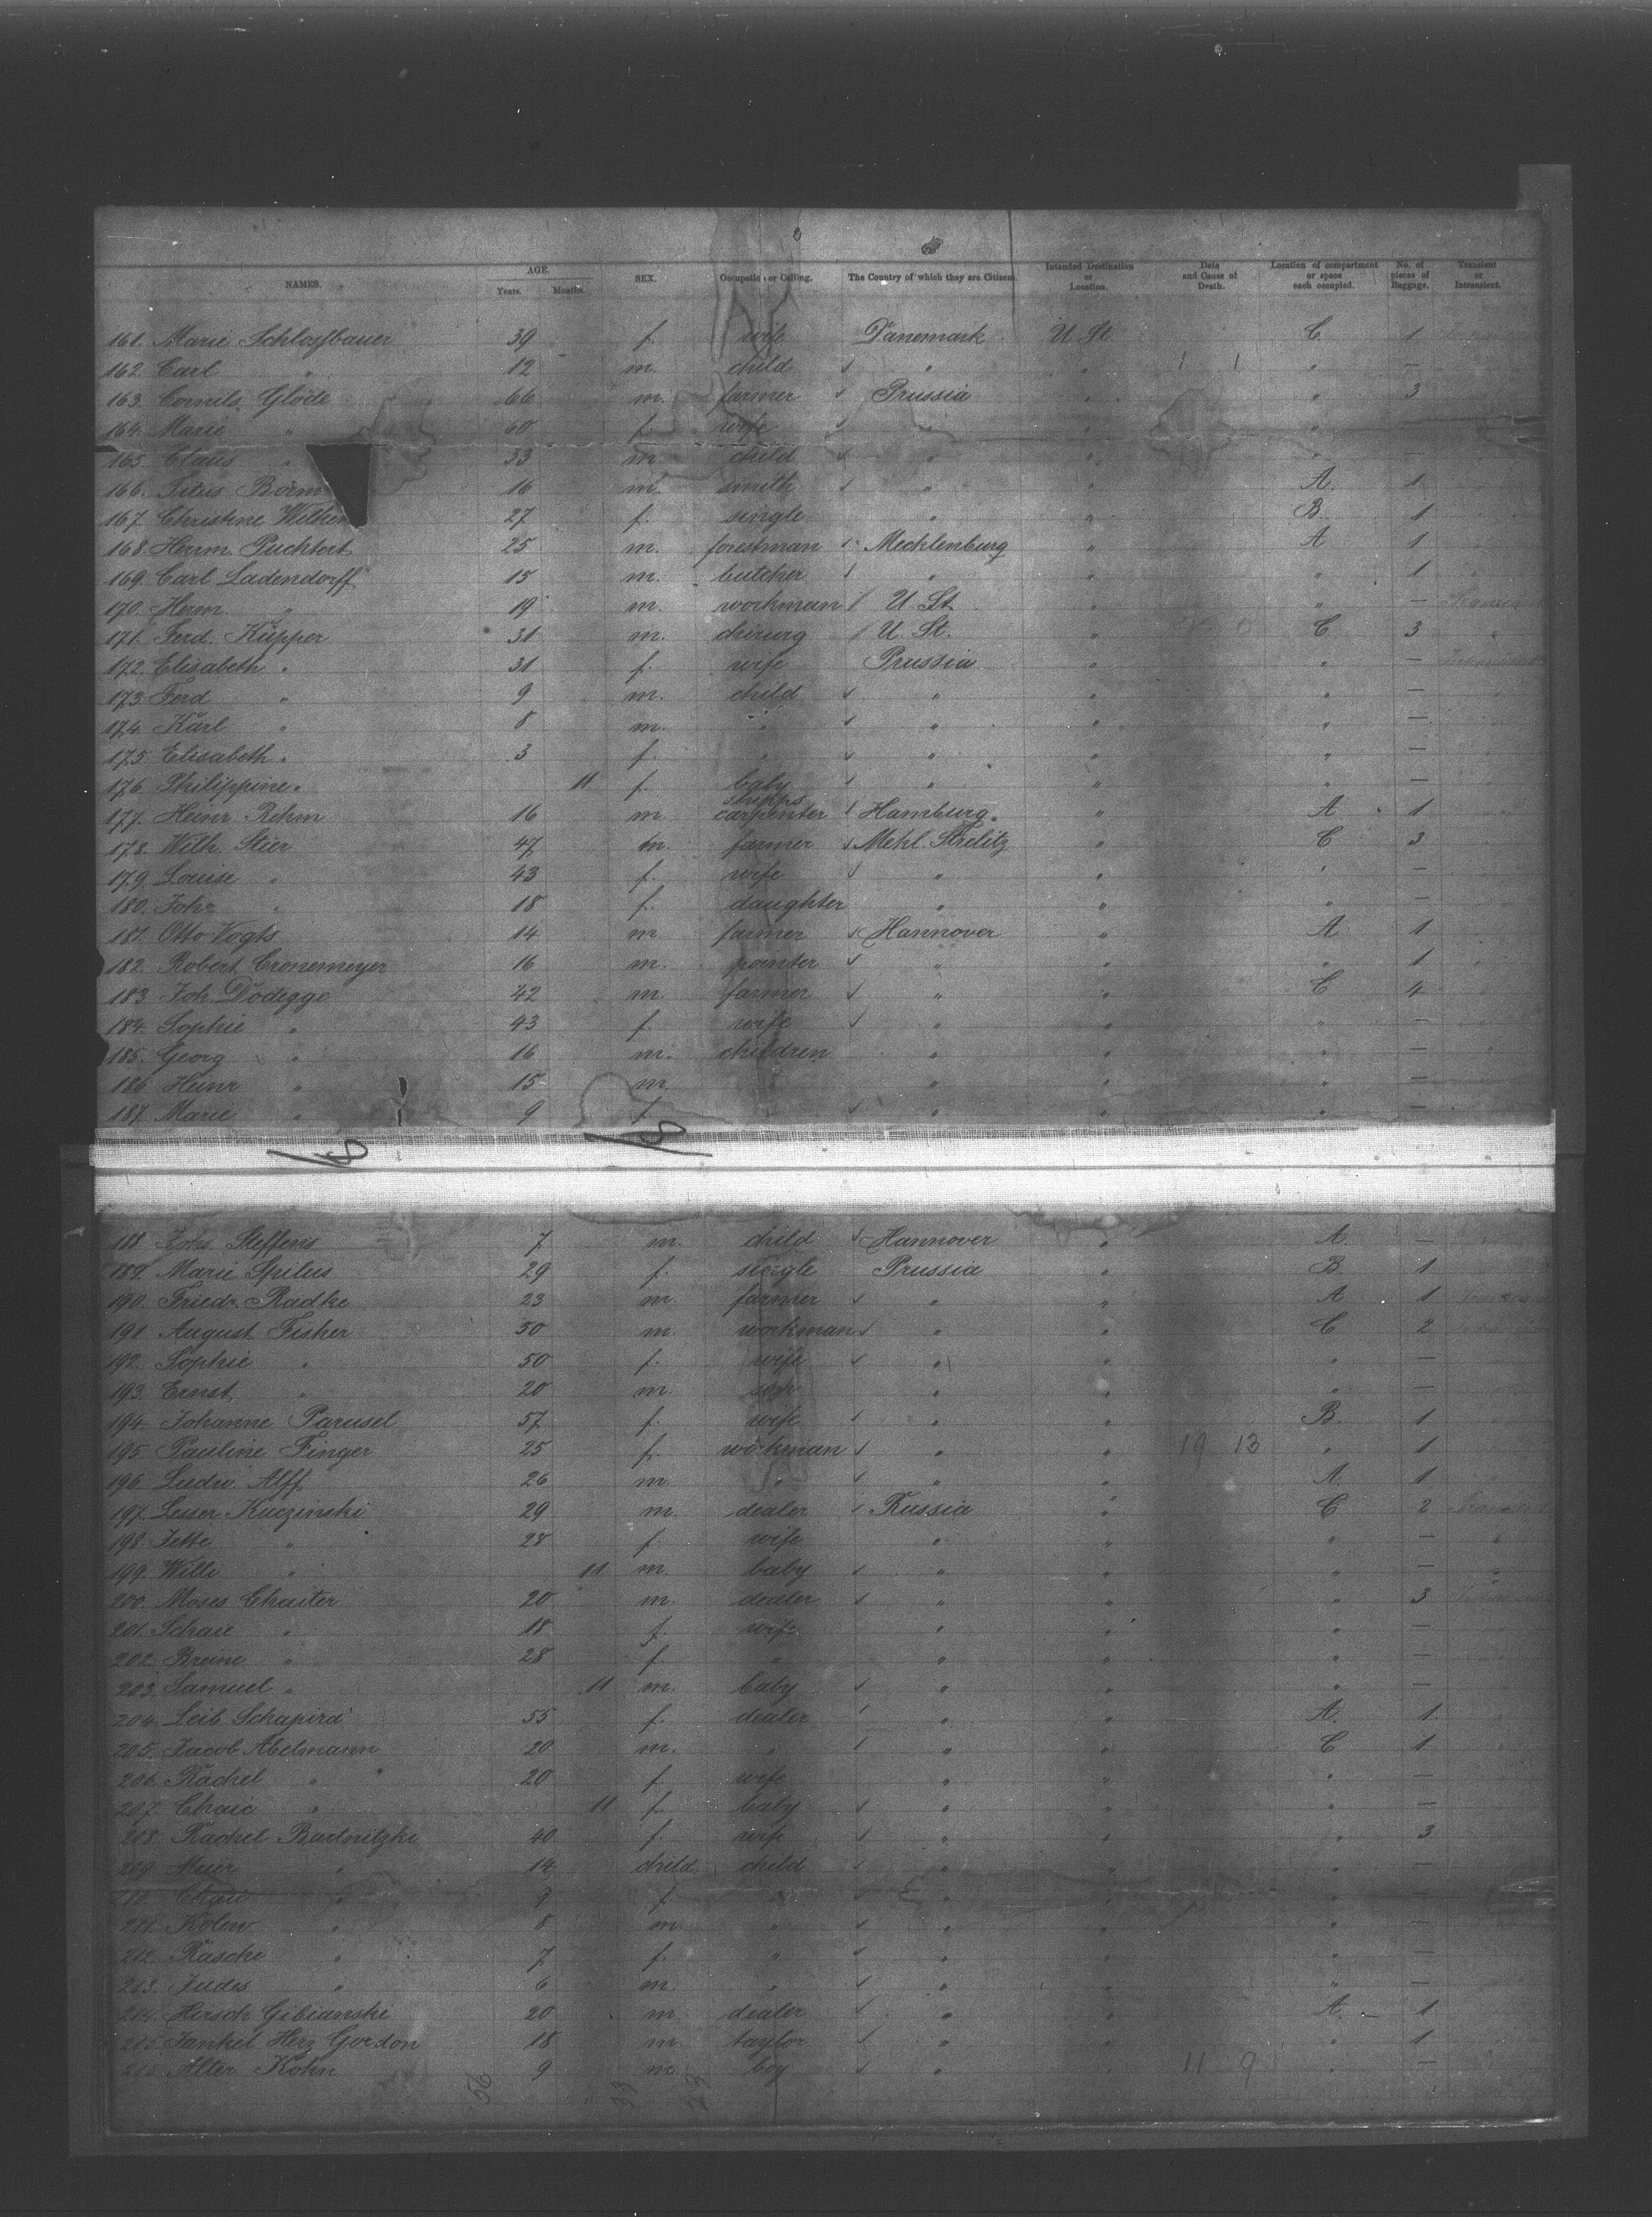 NAMES. AGE. Years. Months. SEX. Occupation or Calling. The Country of which they are Citizens. Intended Destination or Location. Date and Cause of Death. Location of compartment or space each occupied. No. of pieces of Baggage. Transient or Intransient.
161. Marie Schlossbauer 39 f. wife Danemark U St. C 1
162. Carl " 12 m. child " " " —
163. Cornils Glöde 66 m. farmer Prussia " " 3
164. Marie " 60 f. wife " " " —
165. Claus " 33 m. child " " " —
166. Titus Böem 16 m. smith " " A 1
167. Christine Wilken 27 f. single " " B 1
168. Herrm. Puchtert 25 m. forestman Mecklenburg " A 1
169. Carl Ladendorff 15 m. butcher " " " 1
170. Herm " 19 m. workman U St. " " —
171. Ferd. Küpper 31 m. chirurg U. St. " C 3
172. Elisabeth " 31 f. wife Prussia " " —
173. Ferd " 9 m. child " " " —
174. Karl " 8 m. " " " " —
175. Elisabeth " 3 f. " " " " —
176. Philippine " 11 f. baby " " " —
177. Heinr. Rehm 16 m shipps carpenter Hamburg " A 1
178. Wilh. Stier 47 m. farmer Mekl. Strelitz " C 3
179. Louise " 43 f. wife " " " —
180. Joh. " 18 f. daughter " " " —
181. Otto Vogts 14 m farmer Hannover " A 1
182. Robert Cronemeyer 16 m. painter " " " 1
183. Joh. Dödegge 42 m. farmer " " C 4
184. Sophie " 43 f. wife " " " —
185. Georg " 16 m. children " " " —
186. Heinr " 15 m. " " " —
187. Marie " 9 f. " " " —
188. Johs. Steffens 7 m. child Hannover " A —
189. Marie Spilus 29 f. single Prussia " B 1
190. Friedr. Radke 23 m. farmer " " A 1
191. August Fisher 50 m workman " " C 2
192. Sophie " 50 f. wife " " " —
193. Ernst " 20 m. son " " " —
194. Johanne Parusel 57 f. wife " " B. 1
195. Pauline Finger 25 f. workman " " 19 13 " 1
196. Ludw. Alff 26 m. " " " A 1
197. Lesser Kuczinski 29 m. dealer Russia " C 2
198. Jette " 28 f. wife " " " —
199. Willi " 11 m. baby " " " —
200. Moses Chaiter 20 m. dealer " " " 3
201. Schaie " 18 f. wife " " " —
202. Breine " 28 f. " " " " —
203. Samuel " 11 m. baby " " " —
204. Leib Schapira 55 f. dealer " " A. 1
205. Jacob Abelmann 20 m. " " " C 1
206. Rachel " 20 f. wife " " " —
207. Chaie " 11 f. baby " " " —
208. Rachel Bartnitzki 40 f. wife " " " 3
209. Meier " 14 child child " " " —
210. " 9 f. " " " " —
211. Kolew " 8 m. " " " " —
212. Rasche " 7 f. " " " " —
213. Judes " 6 m. " " " " —
214. Hersch Gibianski 20 m dealer " " A 1
215. Jankel Herz Gordon 18 m taylor " " " 1
216. Alter Kohn 9 m. boy " " 11 9 " —